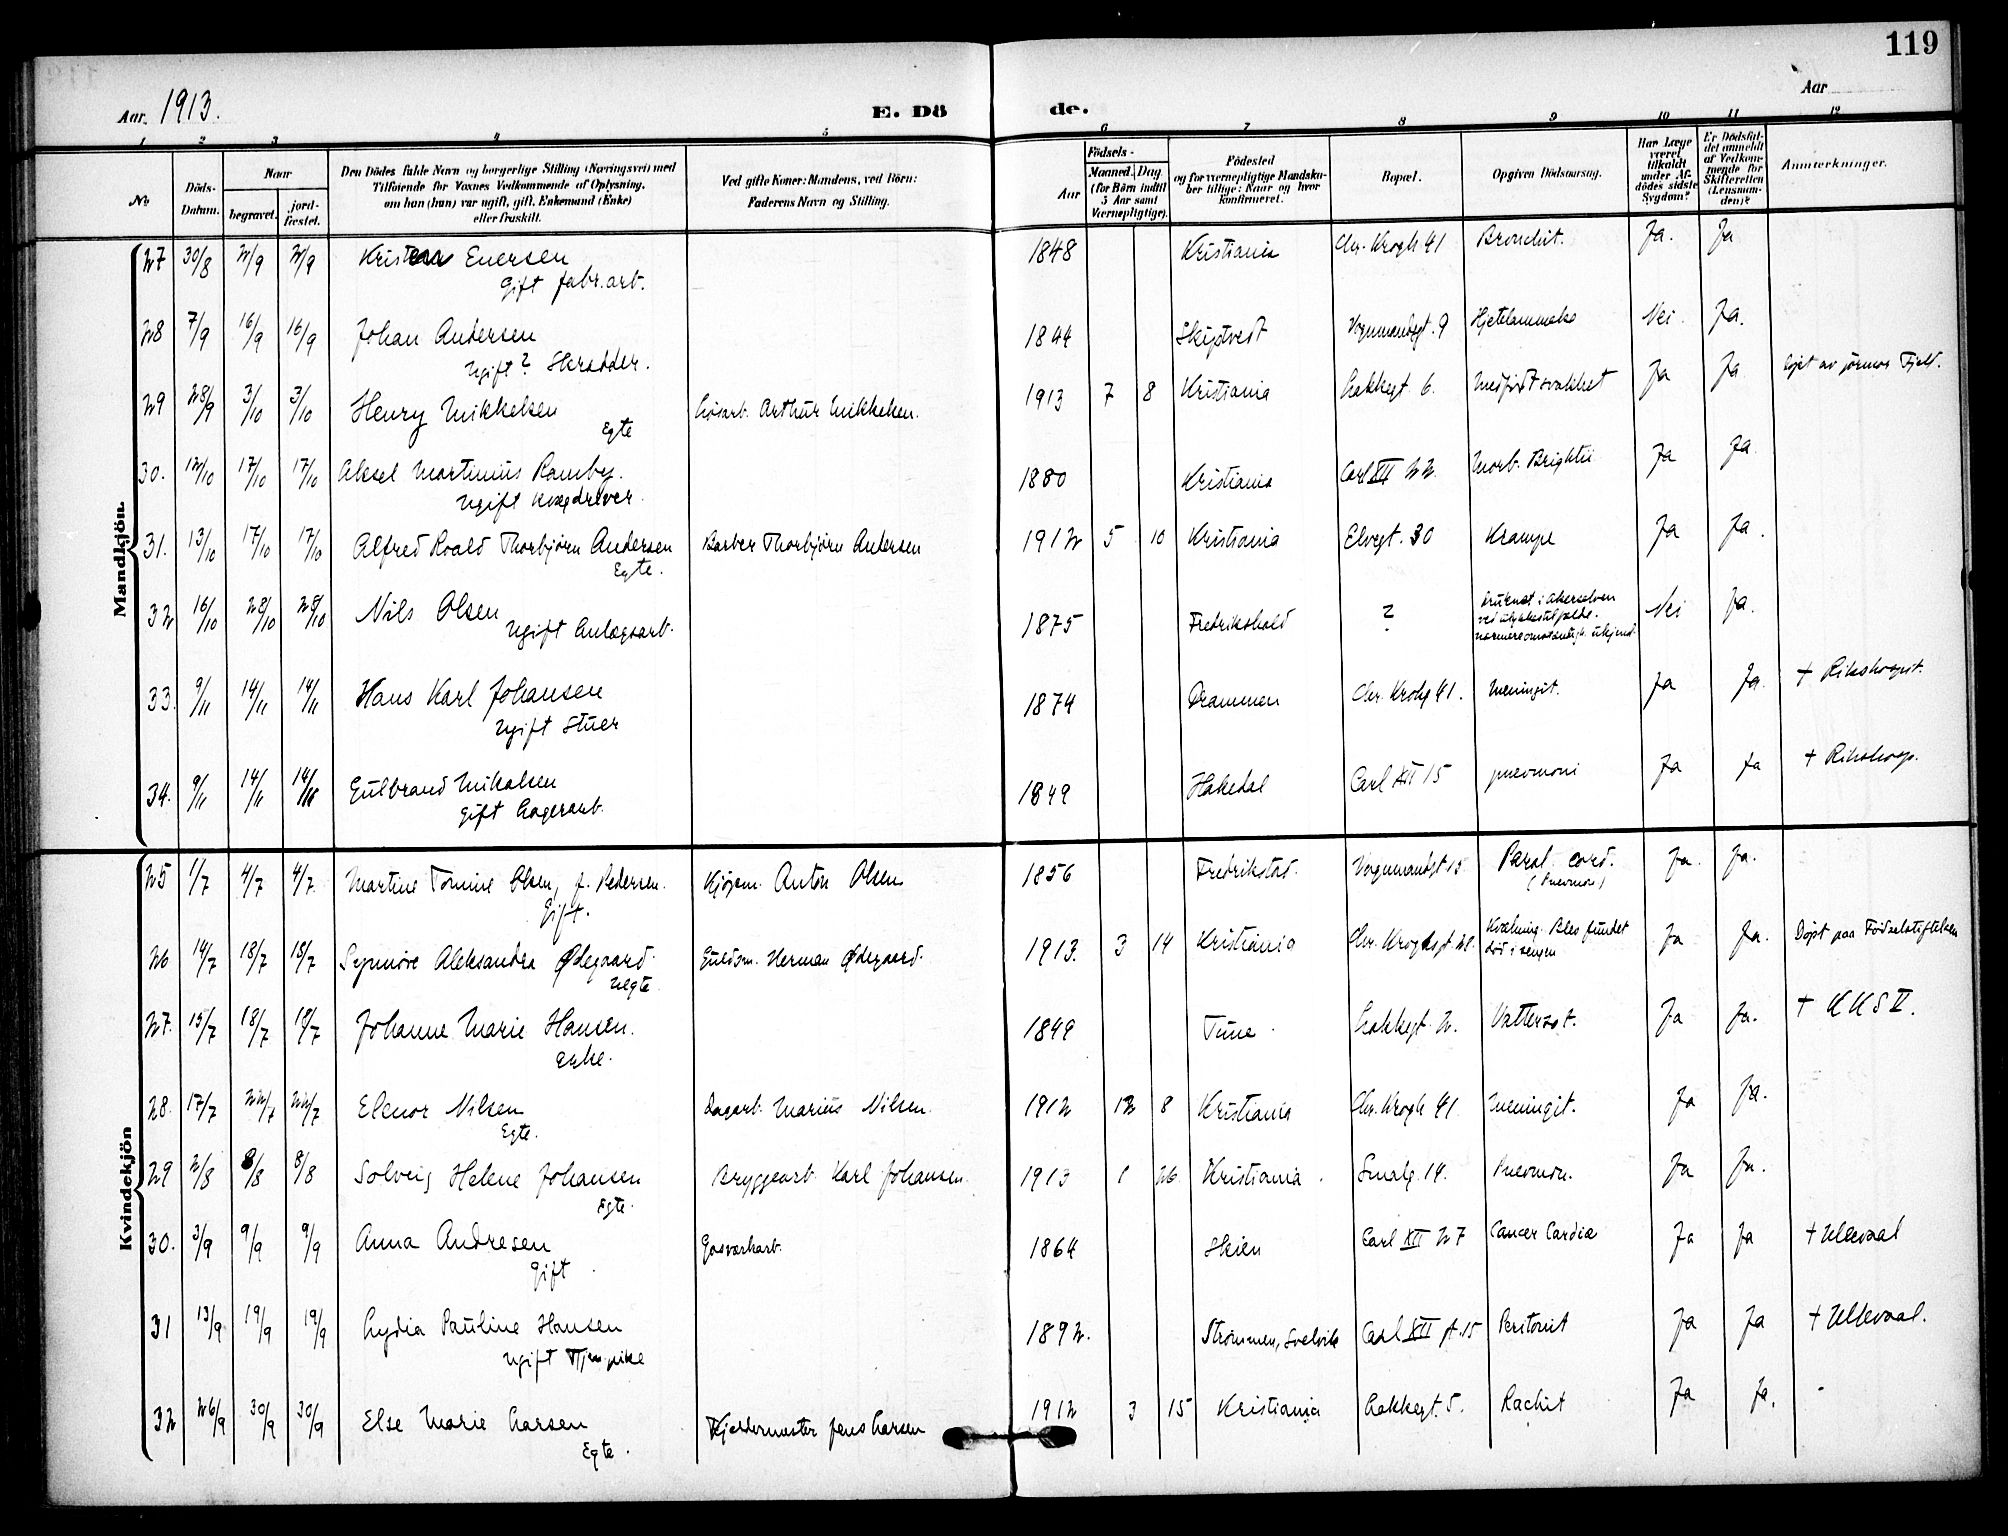 119
Aar. 1913.
E. Dö de.
Aar
1 2 3 4 5 6 7 8 9 10 11 12
No
Döds-Datum.
Naar
begravet.
jord-fæstet.
Den Dödes fulde Navn og borgerlige Stilling (Næringsvei) med
Tilföiende for Voxnes Vedkommende af Oplysning,
om han (hun) var ugift, gift, Enkemand (Enke)
eller fraskilt.
Ved gifte Koner: Mandens, ved Börn:
Faderens Navn og Stilling.
Födsels-
Aar
Maaned. Dag
(for Børn indtil
5 Aar samt
Værnepligtige).
Födested
og for værnepligtige Mandska-
ber tillige: Naar og hvor
konfirmeret.
Bopæl.
Opgiven Dödsaarsag.
Har Læge
været
tilkaldt
under Af-
dödes sidste
Sygdom?
Er Dödsfal-
det anmeldt
af Vedkom-
mende for
Skifteretten
(Lensman-
den)?
Anmærkninger.
Mandkjön.
27 30/8 2/9 2/9 Kristen Evensen 1848 Kristiania Chr. Krogh 41 Bronchit. Ja. Ja
Gift fabr.arb.
28 7/9 16/9 16/9 Johan Andersen 1844 Skiptvedt Vognmandsgt. 9 Hjertelammelse Nei. Ja.
Ugift? Skrædder.
29 28/9 3/10 3/10 Henry Mikkelsen Løsarb. Arthur Mikkelsen. 1913 7 8 Kristiania Lakkegt 6. Medfødt svakhet Ja Ja Døpt av jormor Fjeld.
Egte
30. 12/10 17/10 17/10 Aksel Martinius Ramby. 1880 Kristiania Carl XII 22 Morb. Brightii Ja Ja.
Ugift Kvægdriver.
31. 13/10 17/10 17/10 Alfred Roald Thorbjørn Andersen Barber Thorbjørn Andersen 1912 5 10 Kristiania Elvegt. 30 Krampe Ja Ja.
Egte.
32 16/10 28/10 28/10 Nils Olsen 1875 Fredrikshald ? druknet i Akerselven
ved ulykkestilfælde.
nærmere omstændigh. ukjend. Nei Ja.
Ugift Anlægsarb.
33. 9/11 14/11 14/11 Hans Karl Johansen 1874 Drammen Chr. Krohg 41. Meningit. Ja Ja. + Rikshospit.
Ugift Stuer
34. 9/11 14/11 14/11 Gulbrand Mikalsen 1849 Hakedal Carl XII 15 pneumoni Ja Ja + Rikshosp.
gift Lagerarb.
Kvindekjön
25 1/7 4/7 4/7 Martine Tomine Olsen, f. Pedersen. Kjøpm. Anton Olsen 1856 Fredrikstad. Vognmandsgt 15 Paral. cord. Ja. Ja.
(Pnevmon)
Gift.
26 14/7 18/7 18/7 Synnöve Aleksandra Ødegaard. Guldsm. Herman Ødegaard. 1913. 3 14 Kristiania Chr. Kroghsgt Kvælning. Blev fundet
død i sengen Ja Ja. Døpt paa Fødselsstiftelsen
Uegte
27. 15/7 18/7 18/7 Johanne Marie Hansen. 1849 Tune. Lakkegt 2. Vattersot. Ja Ja. + K K S II.
Enke.
28. 17/7 22/7 22/7 Elenor Nilsen Dagarb. Marius Nilsen. 1912 12 8 Kristiania Chr. Krogh 41. Meningit. Ja Ja.
Egte.
29 2/8 8/8 8/8 Solveig Helene Johansen Bryggearb. Karl Johansen. 1913 1 26 Kristiania. Smalg. 14. Pnevmon. Ja Ja.
Egte.
30. 3/9 9/9 9/9 Anna Andresen Gasværkarb. 1864 Skien Carl XII 27 Cancer Cardiæ Ja Ja + Ullevaal
Gift
31 13/9 19/9 19/9 Lydia Pauline Hansen 1892. Strømmen, Svelvik Carl XII gt. 15 Peritonit Ja Ja + Ullevaal.
ugift Tjen.pike
32 26/9 30/9 30/9 Else Marie Larsen Kjeldermester Jens Larsen 1912 3 15 Kristiania Lakkegt. 5. Rachit Ja Ja.
Egte.